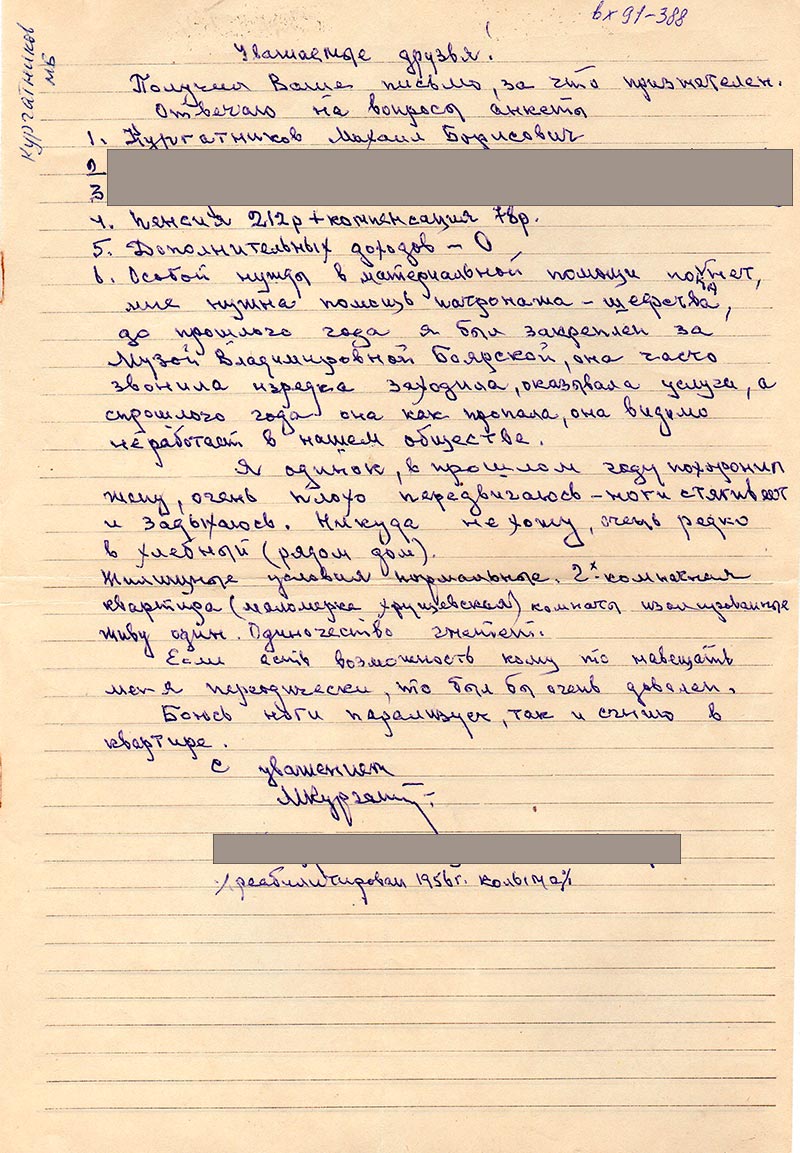 вх 91-388
Кургатников
МБ
Уважаемые друзья!
Получил Ваше письмо, за что признателен.
Отвечаю на вопросы анкеты
1. Кургатников Михаил Борисович
2
3
4. Пенсия 212р + компенсация 78р.
5. Дополнительных доходов – 0
6. Особой нужды в материальной помощи пока нет,
мне нужна помощь патронажа – шефства,
до прошлого года я был закреплен за
Музой Владимировной Боярской, она часто
звонила изредка заходила, оказывала услуги, а
с прошлого года она как пропала, она видимо
не работает в нашем обществе.
Я одинок, в прошлом году похоронил
жену, очень плохо передвигаюсь – ноги стягивает
и задыхаюсь. Никуда не хожу, очень редко
в хлебный (рядом дом).
Жилищные условия нормальные. 2х-комнатная
квартира (маломерка хрущевская) комнаты изолированные
живу один. Одиночество гнетет.
Если есть возможность кому то навещать
меня переодически, то был бы очень доволен.
Боюсь ноги парализует, так и сгнию в
квартире.
С уважением
МКургат
/реабилитирован 1956г. Колыма/